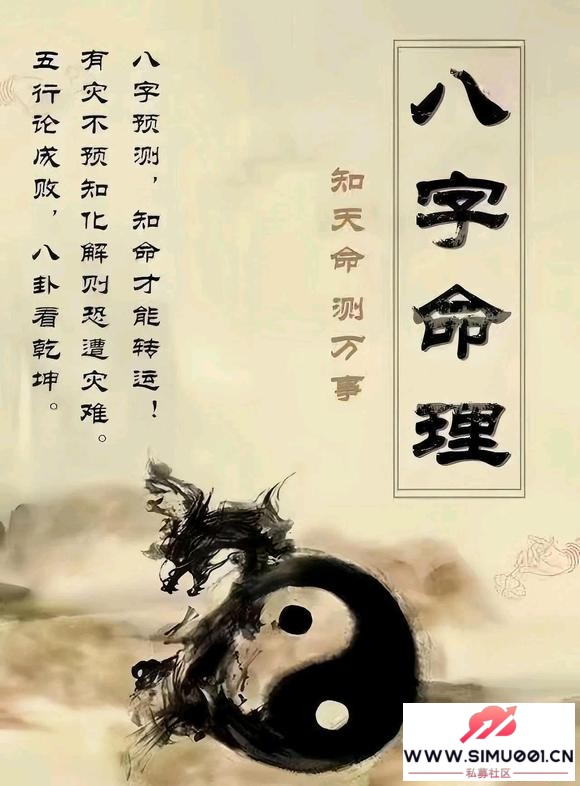 八字命理
知天命测万事
八字预测，知命才能转运！
有灾不预知化解则恐遭灾难。
五行论成败，八卦看乾坤。
WWW.SIMU001.CN
私募社区